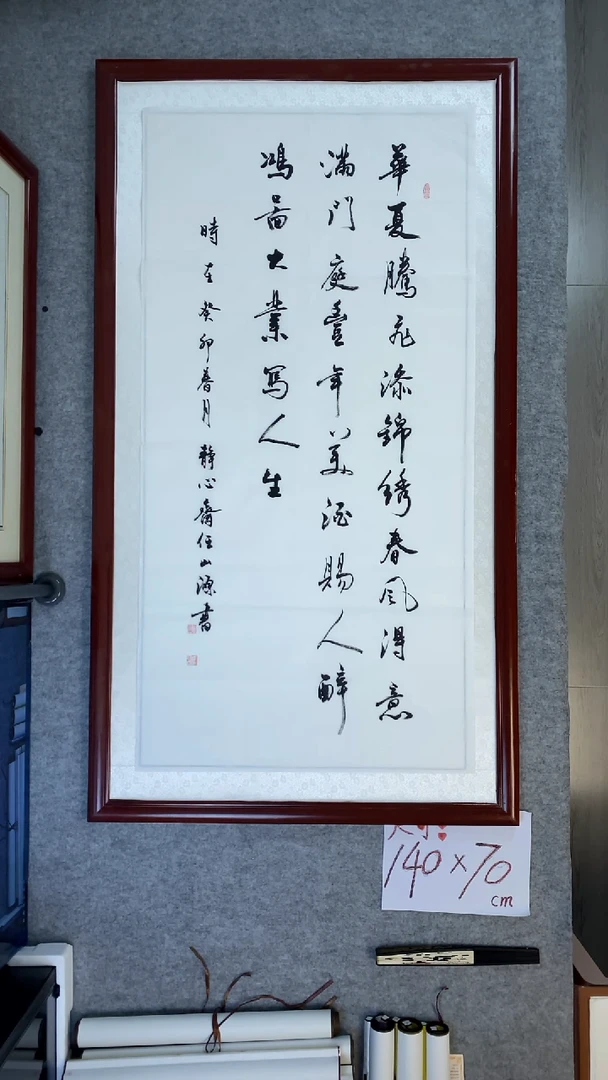 華夏騰飛添錦綉春風得意
滿門庭豐年美酒賜人醉
鴻圖大業寫人生
時在癸卯春月靜心齋任山源書
140×70
cm